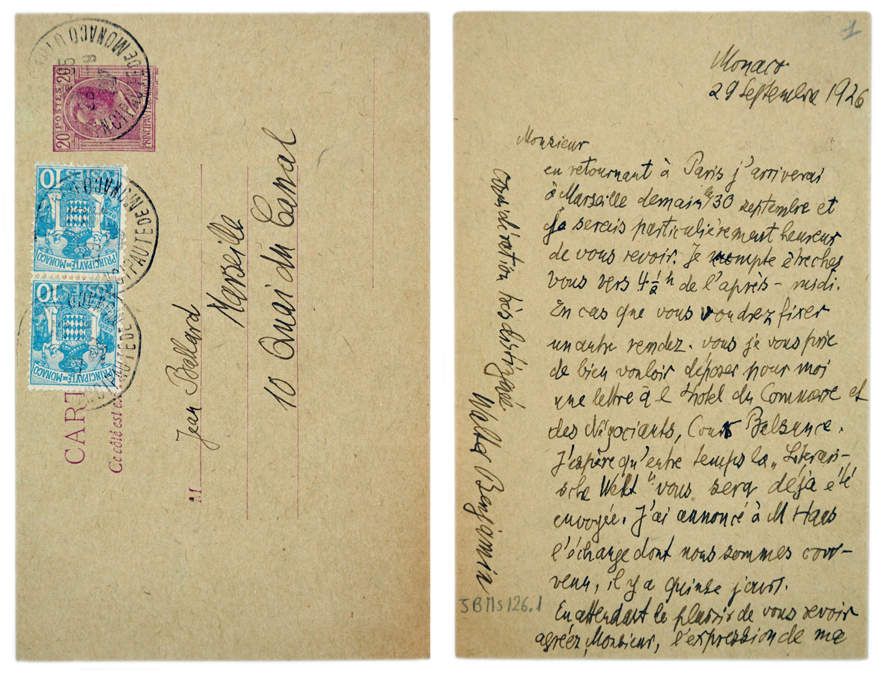 20 POSTES 20
PRINCIPAUTÉ DE MONACO
10
PRINCIPAUTÉ DE MONACO
10
PRINCIPAUTÉ DE MONACO
CART
Ce côté est e
M
Jean Ballard
Marseille
10 Quai du Canal
1
Monaco
29 Septembre 1926
Monsieur
en retournant à Paris j'arriverai
à Marseille demain le 30 septembre et
je serais particulièrement heureux
de vous revoir. Je compte être chez
vous vers 4 ½ h de l'après-midi.
En cas que vous voudrez fixer
un autre rendez-vous je vous prie
de bien vouloir déposer pour moi
une lettre à l'hôtel du Commerce et
des Négociants, Cours Belsunce.
J'espère qu'entre temps la „Literari-
sche Welt" vous sera déjà été
envoyée. J'ai annoncé à M Haas
l'échange dont nous sommes con-
venu, il y a quinze jours.
En attendant le plaisir de vous revoir
agréez, Monsieur, l'expression de ma
considération très distinguée
Walter Benjamin
JB Ms 126.1